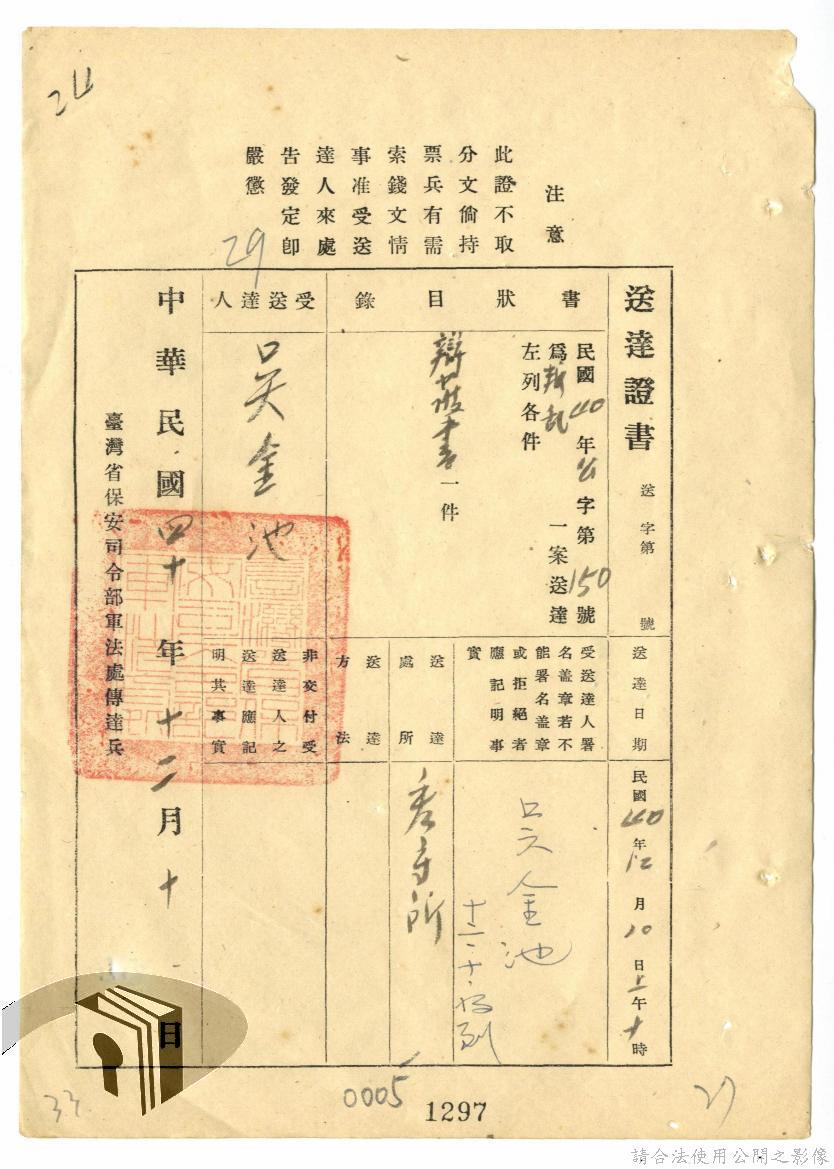 24
注意
此證不取
分文倘持
票兵有需
索錢文情
事准受送
達人來處
告發定卽
嚴懲
29
送達證書
送 字第 號
送達日期
民國40年12月10日上午十時
書狀目錄
民國40年 字第150號
爲叛亂一案送達
左列各件
辯護書一件
受送達人署
名蓋章若不
能署名蓋章
或拒絕者
應記明事
實
吳金池
十二、十、收到
送達處所
看守所
送達方法
受送達人
吳金池
非交付受
送達人之
送達應記
明其事實
中華民國四十年十二月十日
臺灣省保安司令部軍法處傳達兵
33
0005
1297
27
請合法使用公開之影像